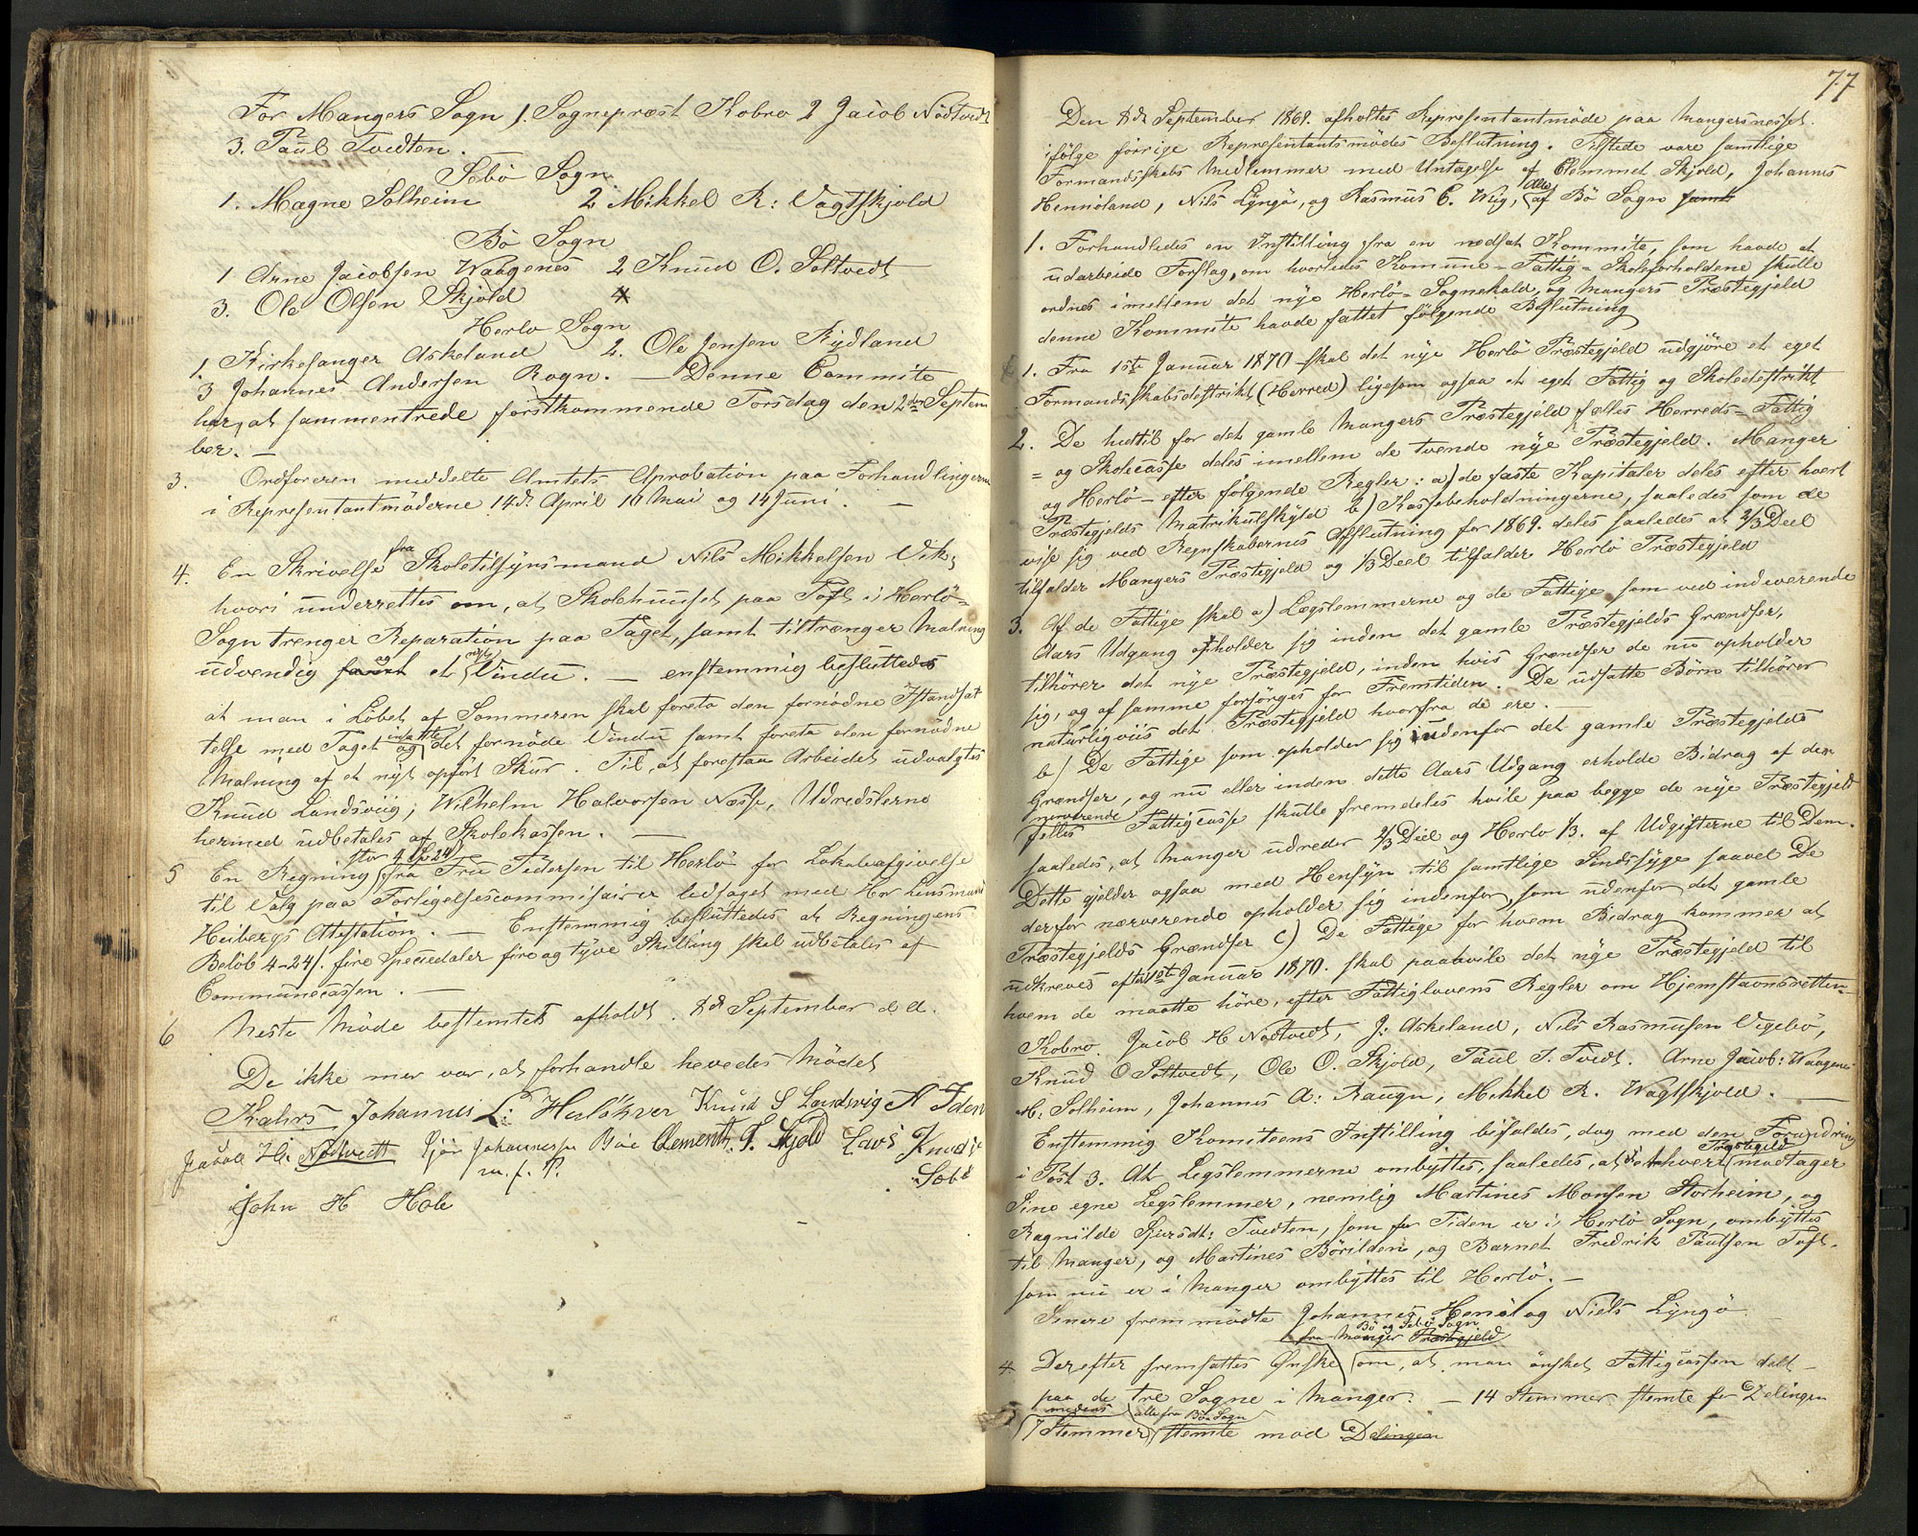 For Mangers Sogn 1. Sogneprest Kobro 2 Jacob Nödtvedt
3. Paul Tvedten.
Sæbö Sogn
1. Magne Solheim 2 Mikkel R: Vagtskjold
Bö Sogn
1 Arne Jacobsen Waagenes 2 Knud O. Soltvedt
3. Ole Olsen Skjold
Herlo Sogn
1. Kirkesanger Askeland 2. Ole Jensen Rydland
3 Johannes Andersen Rogn. — Denne Commite
har, at sammentrede förstkommende Torsdag den 2den Septem
ber. —
3. Ordföreren meddelte Amtets Aprobation paa Forhandlingerne
i Representantmöderne 14de April 10 Mai og 14 Juni. —
4. En Skrivelse fra Skoletilsynsmand Nils Mikkelsen Vik,
hvori underrettes om, at Skolehuuset paa Toft i Herlö-
Sogn trenger Reparation paa Taget, samt tiltrænger Malning
udvendig samt og et nyt Vindu. — enstemmig besluttedes
at man i Löbet af Sommeren skal foreta den fornödne Istandsæt
telse med Taget og insætte det fornöde Vindu samt foreta den fornödne
Malning af et nyt opfört Skur. Til, at forestaa Arbeidet udvalgtes
Knud Landsviig, Wilhelm Halvorsen Næsse, Udredslerne
hermed udbetales af Skolekassen. —
5 En Regning stor 4 Sp 24 fra Fru Pedersen til Herlö for Lokaleafgivelse
til Valg paa Forligelsescommisairer ledsaget med Hr Lensmand
Heibergs Attestation. — Enstemmig besluttedes at Regningens
Belöb 4-24/. fire Speciedaler fire og tyve Skilling skal udbetales af
Communecassen. —
6 Neste Möde bestemtes afholdt. 8de September d. A.
De ikke mer var, at forhandle hevedes Mödet
Kahrs Johannes L: Knud S Landsvig A Iden
Jacob H. Nødtvedt Johannesen Böe Clement. T. Skjold Lars Knuds
m. f. P. Sæbö
John H Hole
77
Den 8de September 1869. afholtes Representantmöde paa Mangersnesset.
ifölge forrige Representantsmödes Beslutning. Tilstede vare samtlige
Formandsskabs Medlemmer med Untagelse af Clemmet Skjold, Johannes
Hennöland, Nils Lyngö, og Rasmus C. Wiig, alle af Bö Sogn samt
1. Forhandledes en Instilling fra en nedsat Kommite, som havde at
udarbeide Forslag, om hvorledes Komune- Fattig- Skoleforholdene skulle
ordnes imellem det nye Herlö- Sognekald, og Mangers Præstegjeld
denne Kommite havde fattet fölgende Beslutning
1. Fra 1ste Januar 1870 skal det nye Herlö Præstegjeld udgjöre et eget
Formandsskabsdestrikt (Herred) ligesom ogsaa et eget Fattig og Skoledestrikt
2. De hidtil for det gamle Mangers Præstegjeld fælles Herreds- Fattig
- og Skolecasse deles imellem de tvende nye Præstegjeld. Manger
og Herlö - efter fölgende Regler: a) de faste Kapitaler deles efter hvert
Præstegjelds Matrikulskyld b) Kassebeholdningerne, saaledes som de
vise sig ved Regnskabernes Afslutning for 1869. deles saaledes at 2/3 Deel
tilfalder Mangers Præstegjeld og 1/3 Deel tilfalder Herlö Præstegjeld
3. Af de Fattige skal a) Lægslemmerne og de Fattige som ved indeværende
Aars Udgang opholder sig inden det gamle Præstegjelds Grændser,
tilhörer det nye Præstegjeld, inden hvis Grændser de nu opholder
sig, og af samme forsörges for Fremtiden. De udsatte Börn tilhörer
naturligviis det Præstegjeld hvorfra de ere. —
b) De Fattige som opholder sig udenfor det gamle Præstegjelds
Grændser, og nu eller inden dette Aars Udgang erholde Bidrag af den
nuværende felles Fattigcasse skulle fremdeles hvile paa begge de nye Præstegjeld
saaledes, at Manger udreder 2/3 Deel og Herlo 1/3. af Udgifterne til Dem.
Dette gjelder ogsaa med Hensyn til samtlige Sindssyge saavel De
der for nærverende opholder sig indenfor, som udenfor det gamle
Præstegjelds Grændser C) De Fattige for hvem Bidrag kommer at
udkreves efter 1ste Januar 1870. skal paahvile det nye Præstegjeld til
hvem de maatte höre, efter Fattiglovens Regler om Hjemstavnsretten.
Kobro. Jacob H Nödtvedt, J. Askeland, Nils Rasmusen Vigebö,
Knud O Soltvedt, Ole O. Skjold, Paul J. Tvedt. Arne Jacob: Waagenes
M: Solheim, Johannes A: Raugn, Mikkel R. Wagtskjold. —
Enstemmig Komiteens Instilling bifaldes, dog med den Forandring
i Post 3. At Legslemmerne ombyttes, saaledes, at et hvert Præstegjeld modtager
Sine egne Legslemmer, nemlig Martines Monsen Storheim, og
Ragnilde Sjursdt: Tvedten, som for Tiden er i Herlö Sogn, ombyttes
til Manger, og Martines Börilden, og Barnet Fredrik Paulsen Toft.
som nu er i Manger ombyttes til Herlö. —
Senere fremmödte Johannes Henöl og Niels Lyngö
4. Derefter fremsattes Önske fra Manger Præstegjeld Bö og Sebö Sogn om, at man önsket Fattigcassen delt
paa de tre Sogne i Manger. — 14 Stemmer stemte for Delingen
medens 7 Stemmer alle fra Bö Sogn stemte mod Delingen